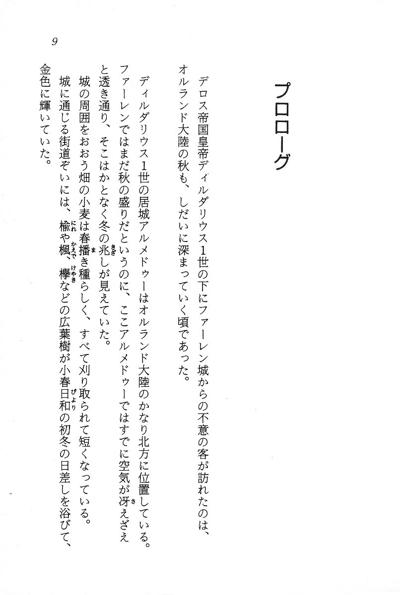 9
プロローグ
デロス帝国皇帝ディルダリウス1世の下にファーレン城からの不意の客が訪れたのは、
オルランド大陸の秋も、しだいに深まっていく頃であった。
ディルダリウス1世の居城アルメドゥーはオルランド大陸のかなり北方に位置している。
ファーレンではまだ秋の盛りだというのに、ここアルメドゥーではすでに空気が冴えざえ
と透き通り、そこはかとなく冬の兆しが見えていた。
城の周囲をおおう畑の小麦は春播き種らしく、すべて刈り取られて短くなっている。
城に通じる街道ぞいには、楡や楓、欅などの広葉樹が小春日和の初冬の日差しを浴びて、
金色に輝いていた。